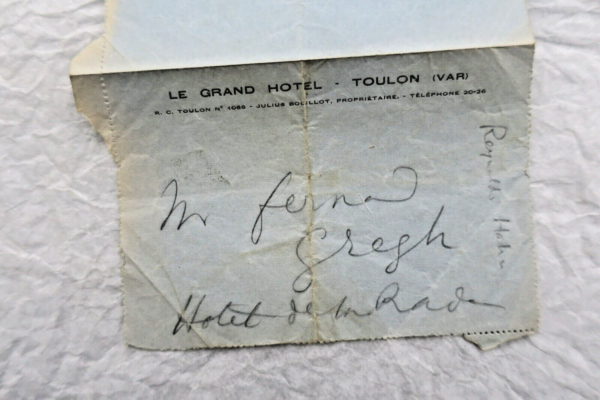 LE GRAND HOTEL - TOULON (VAR)
R. C. TOULON N° 1066 - JULIUS BOUILLOT, PROPRIÉTAIRE. - TÉLÉPHONE 20-36
Mr Fernand
Gregh
Hotel de la Rade
Reynaldo Hahn